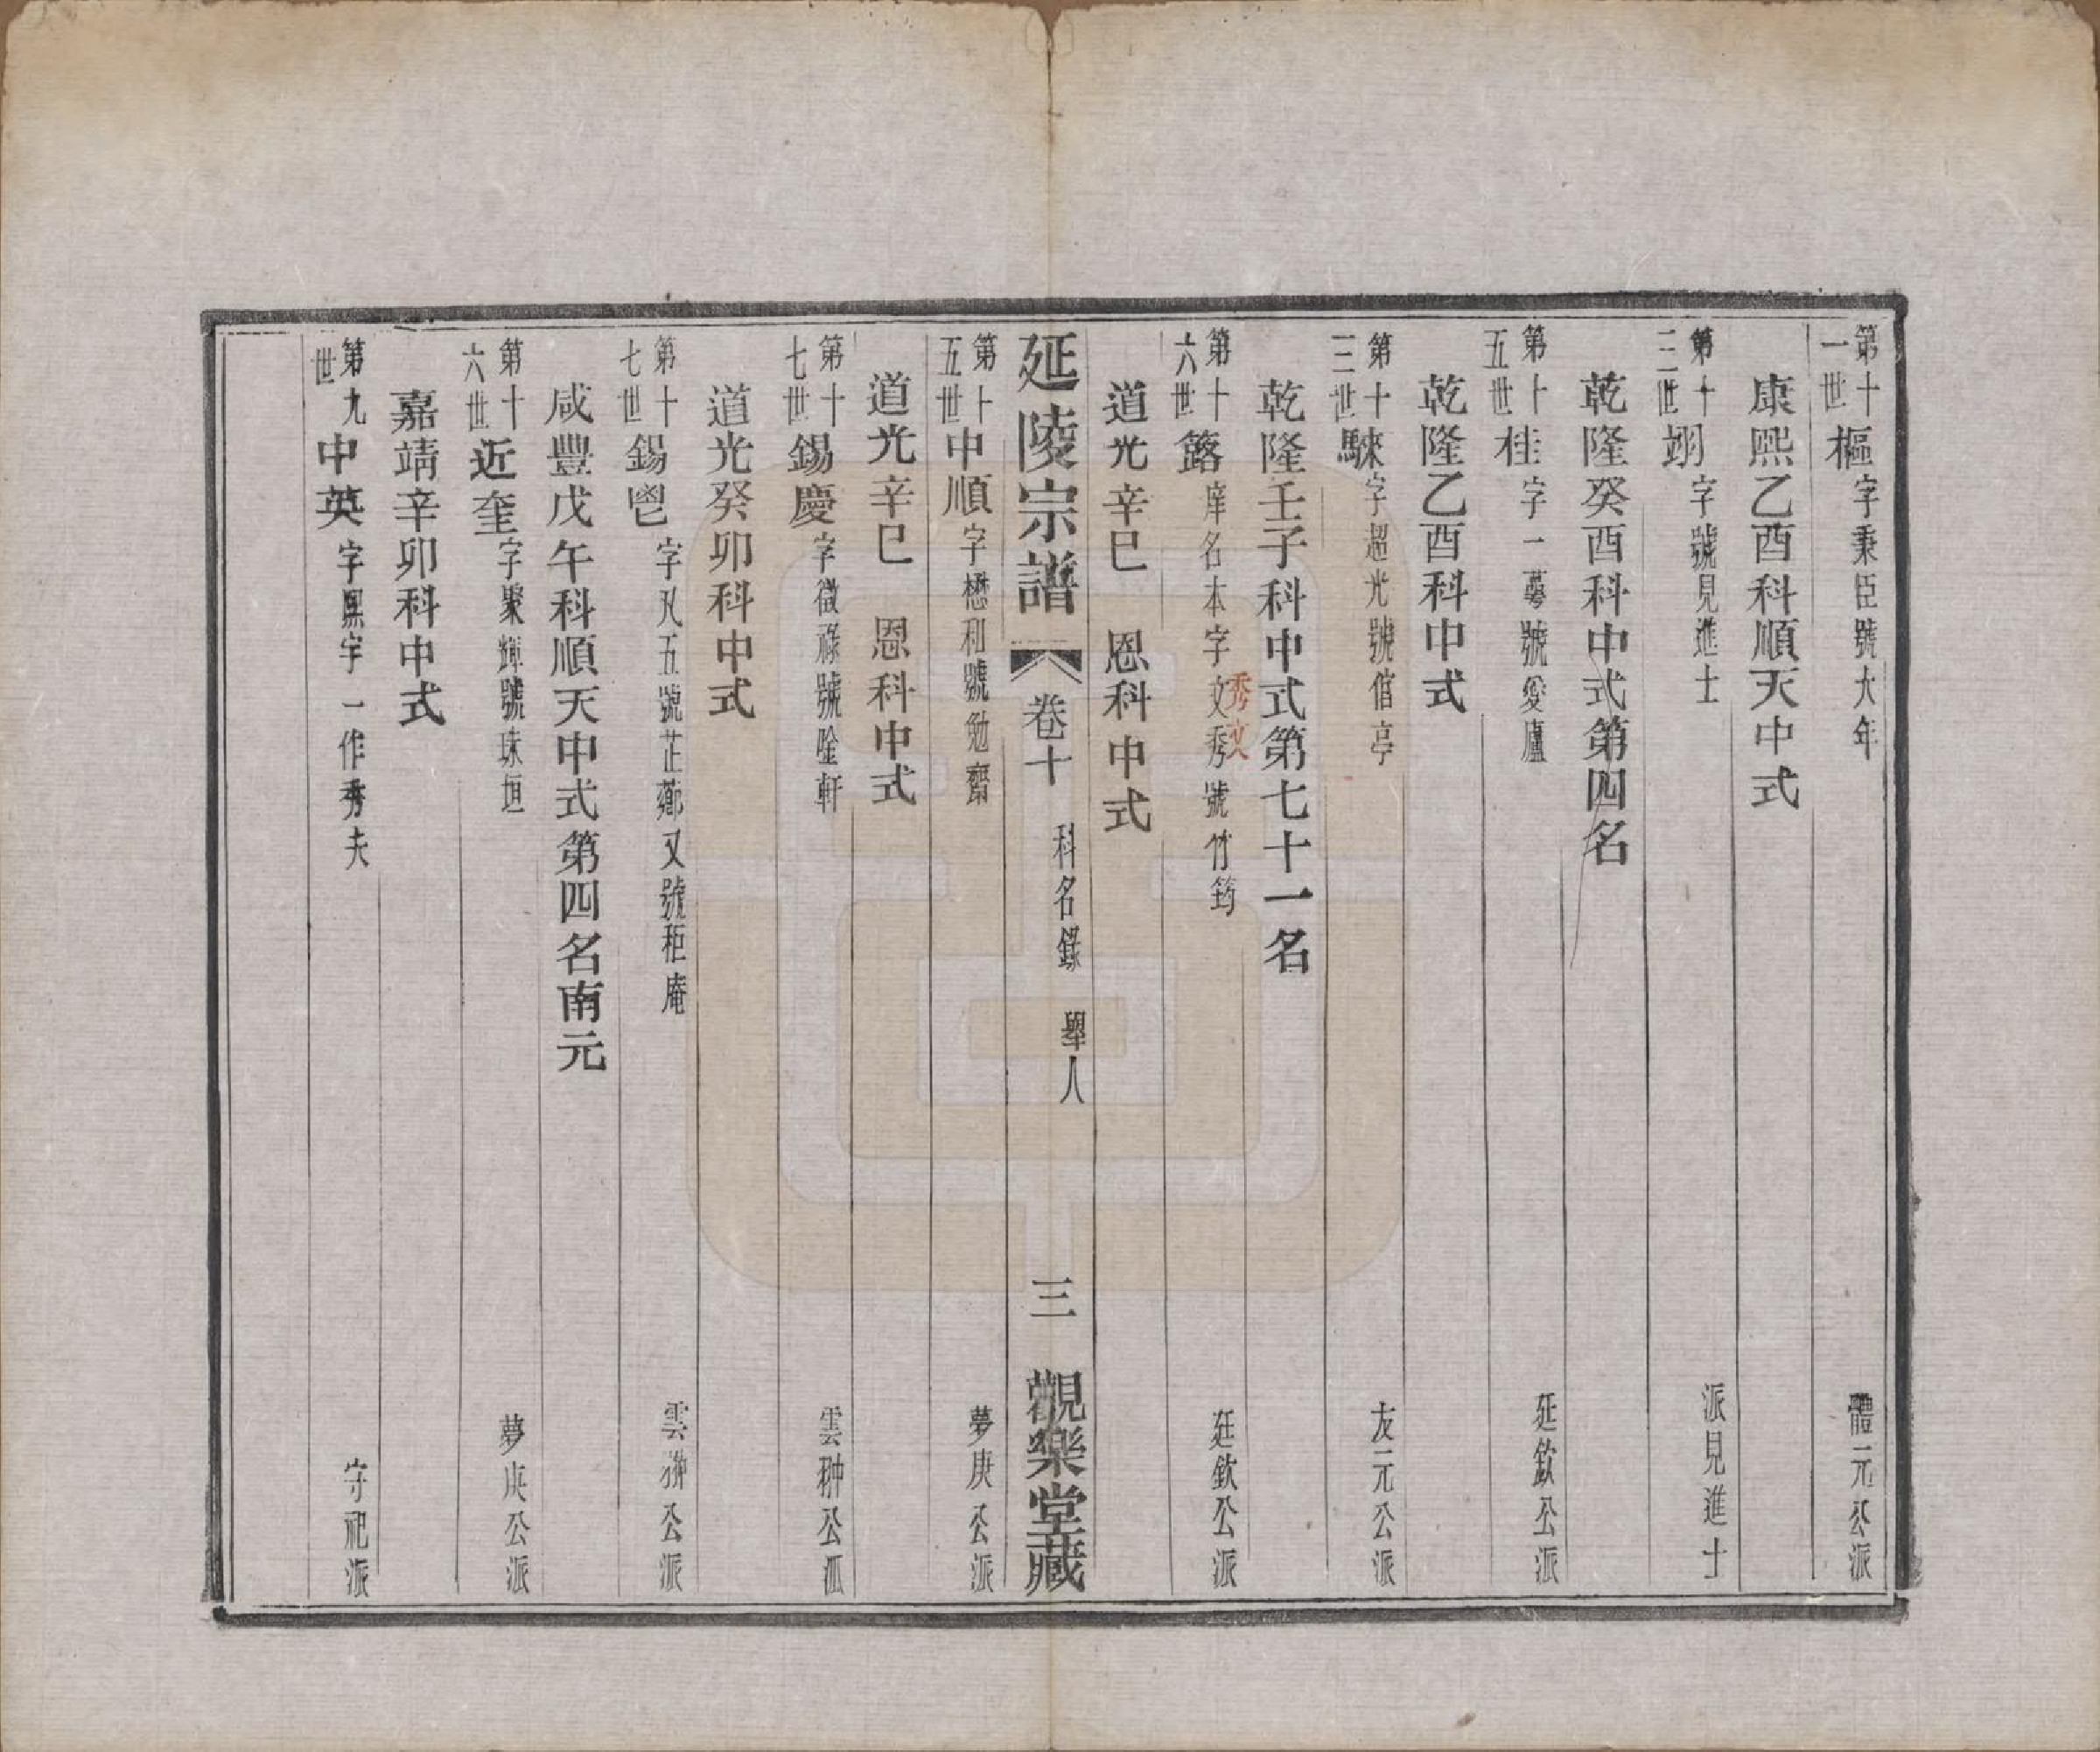 第十一世樞字秉臣號大年　體元公派
康熙乙酉科順天中式
第十三世翊字號見進士　派見進士
乾隆癸酉科中式第四名
第十五世桂字一蕚號愛廬　延欽公派
乾隆乙酉科中式
第十三世騋字超光號倌亭　友元公派
乾隆壬子科中式第七十一名
第十六世簬庠名本字文秀號竹筠　廷欽公派
秀文
道光辛巳　恩科中式
延陵宗譜　卷十　科名錄　舉人　三　觀樂堂藏
第十五世中順字懋和號勉齋　夢庚公派
道光辛巳　恩科中式
第十七世錫慶字徵祿號唫軒　雲翀公派
道光癸卯科中式
第十七世錫鬯字㐅五號芷薌又號秬庵　雲翀公派
咸豐戊午科順天中式第四名南元
第十六世近奎字聚輝號珠垣　夢庚公派
嘉靖辛卯科中式
第九世中英字熙宇一作秀夫　守祀派